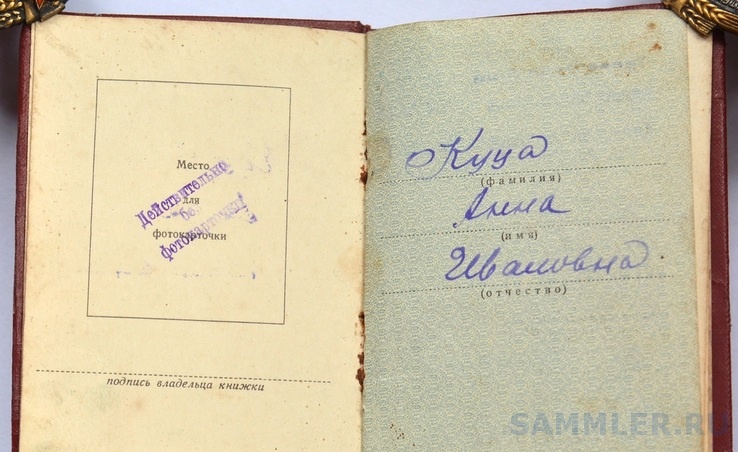 Место
для
фотокарточки
Действительно
без
фотокарточки
подпись владельца книжки
Куца
(фамилия)
Анна
(имя)
Ивановна
(отчество)
SAMMLER.RU